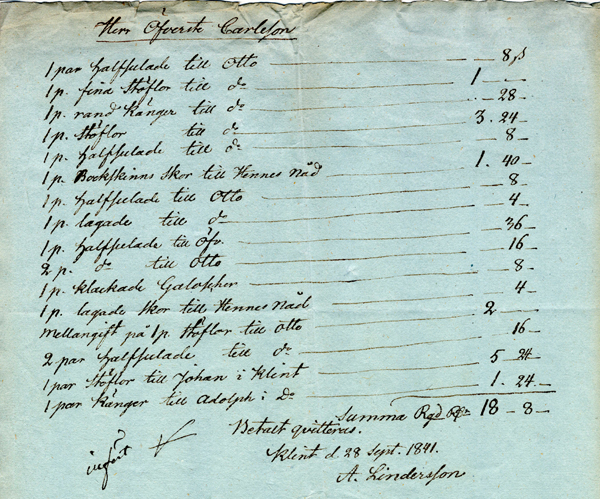 Herr Öfverste Carleson
1 par halfsulade till Otto — 8 β
1 p. fina Stöflor till do — 1 —
1 p. rand Kängor till do — 28 —
1 p. Stöflor till do — 3. 24 —
1 p. halfsulade till do — 8 —
1 p. Bockskinns Skor till Hennes Nåd — 1. 40 —
1 p. halfsulade till Otto — 8 —
1 p. lagade till do — 4 —
1 p. halfsulade till Öfv. — 36 —
2 p. do till Otto — 16 —
1 p. klackade Galoscher — 8 —
1 p. lagade Skor till Hennes Nåd — 4 —
Mellangift på 1 p. Stöflor till Otto — 2 —
2 par halfsulade till do — 16 —
1 par Stöflor till Johan i Klint — 5 24 —
1 par Känger till Adolph i Do — 1. 24 —
Summa Rgd 18 — 8 —
Betalt qvitteras.
Klint d. 28 Sept. 1841.
A. Lindersson
infört